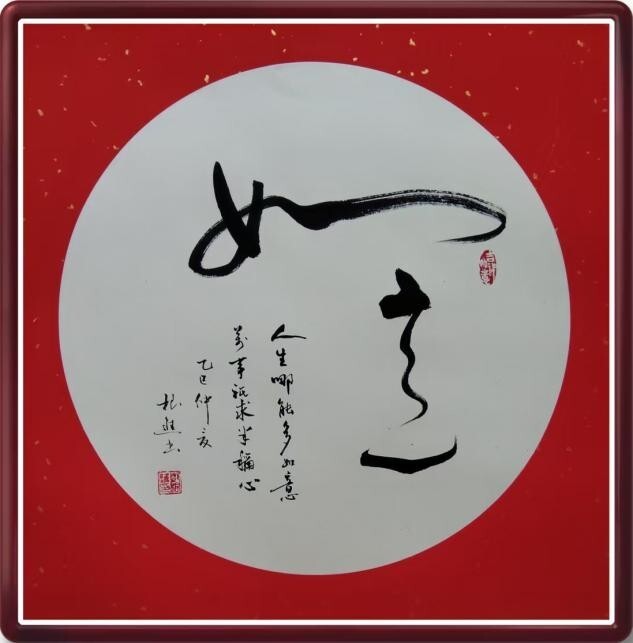 如意
人生哪能多如意
萬事祗求半稱心
乙巳仲夏
根书